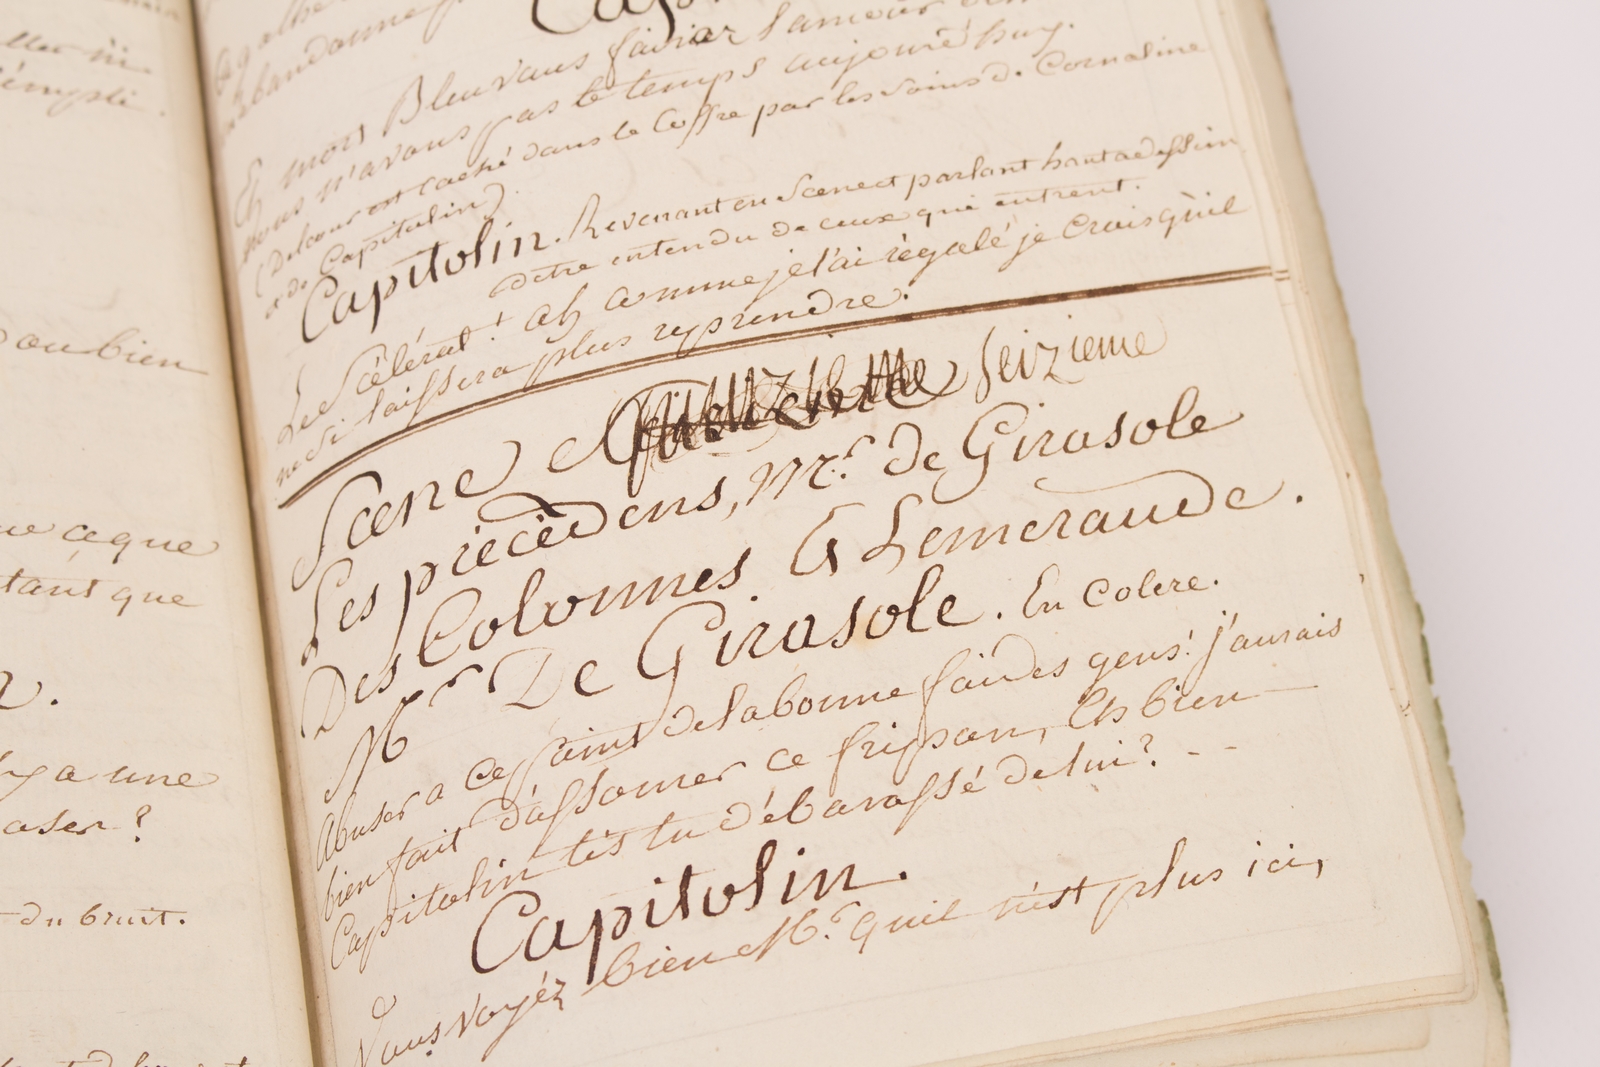 ller ni
l'empli.
ou bien
ce que
tant que
y a une
aser ?
du bruit.
abandonne
Eh morbleu vous
nous n'avons pas le temps aujourd'huy.
(Delcour est caché dans le Coffre par les soins de Cornaline
et de Capitolin)
Capitolin. Revenant en Scene et parlant haut a dessein
detre entendu de ceux qui entrent.
Le Scélérat! ah comme je l'ai régalé je crois qu'il
ne si laissera plus reprendre.
Scene Seizieme
Les précédens, Mr. de Girasole
Des Colonnes & Lemeraude.
Mr De Girasole. En Colere.
Abuser a ce point de la bonne foi des gens! j'aurais
bien fait d'assomer ce fripon, Eh bien
Capitolin t'es tu débarassé de lui? - -
Capitolin.
Vous voyéz bien Mr. quil n'est plus ici,